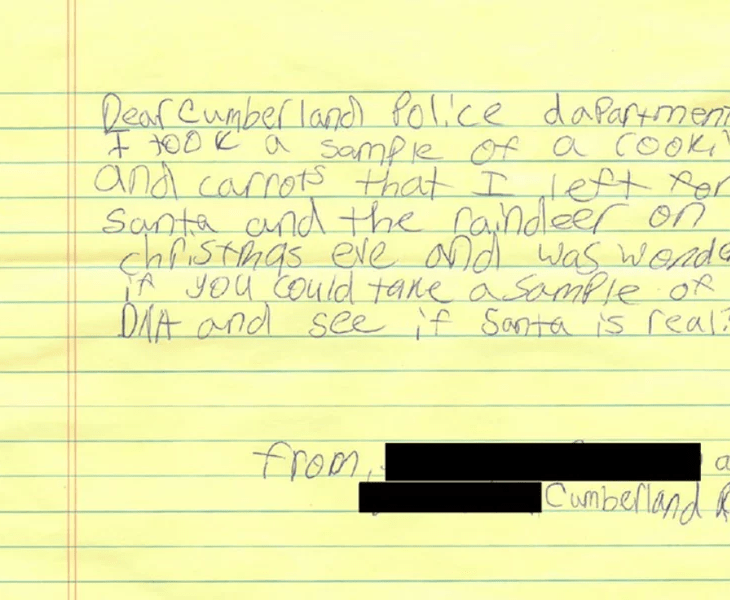 Dear Cumberland Police dapartment
I took a sample of a cooki
and carrots that I left for
Santa and the raindeer on
christmas eve and was wonde
if you could take a sample of
DNA and see if Santa is real?
from, a
Cumberland R